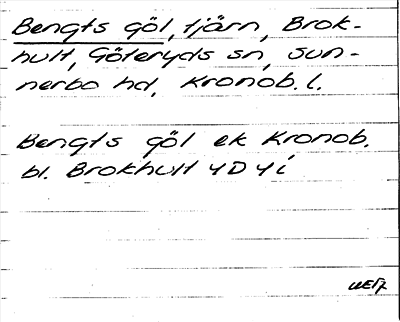 Bengts göl, tjärn, Brok-
hult, Göteryds sn, Sun-
nerbo hd, Kronob. l.
Bengts göl ek Kronob.
bl. Brokhult 4 D 4 i